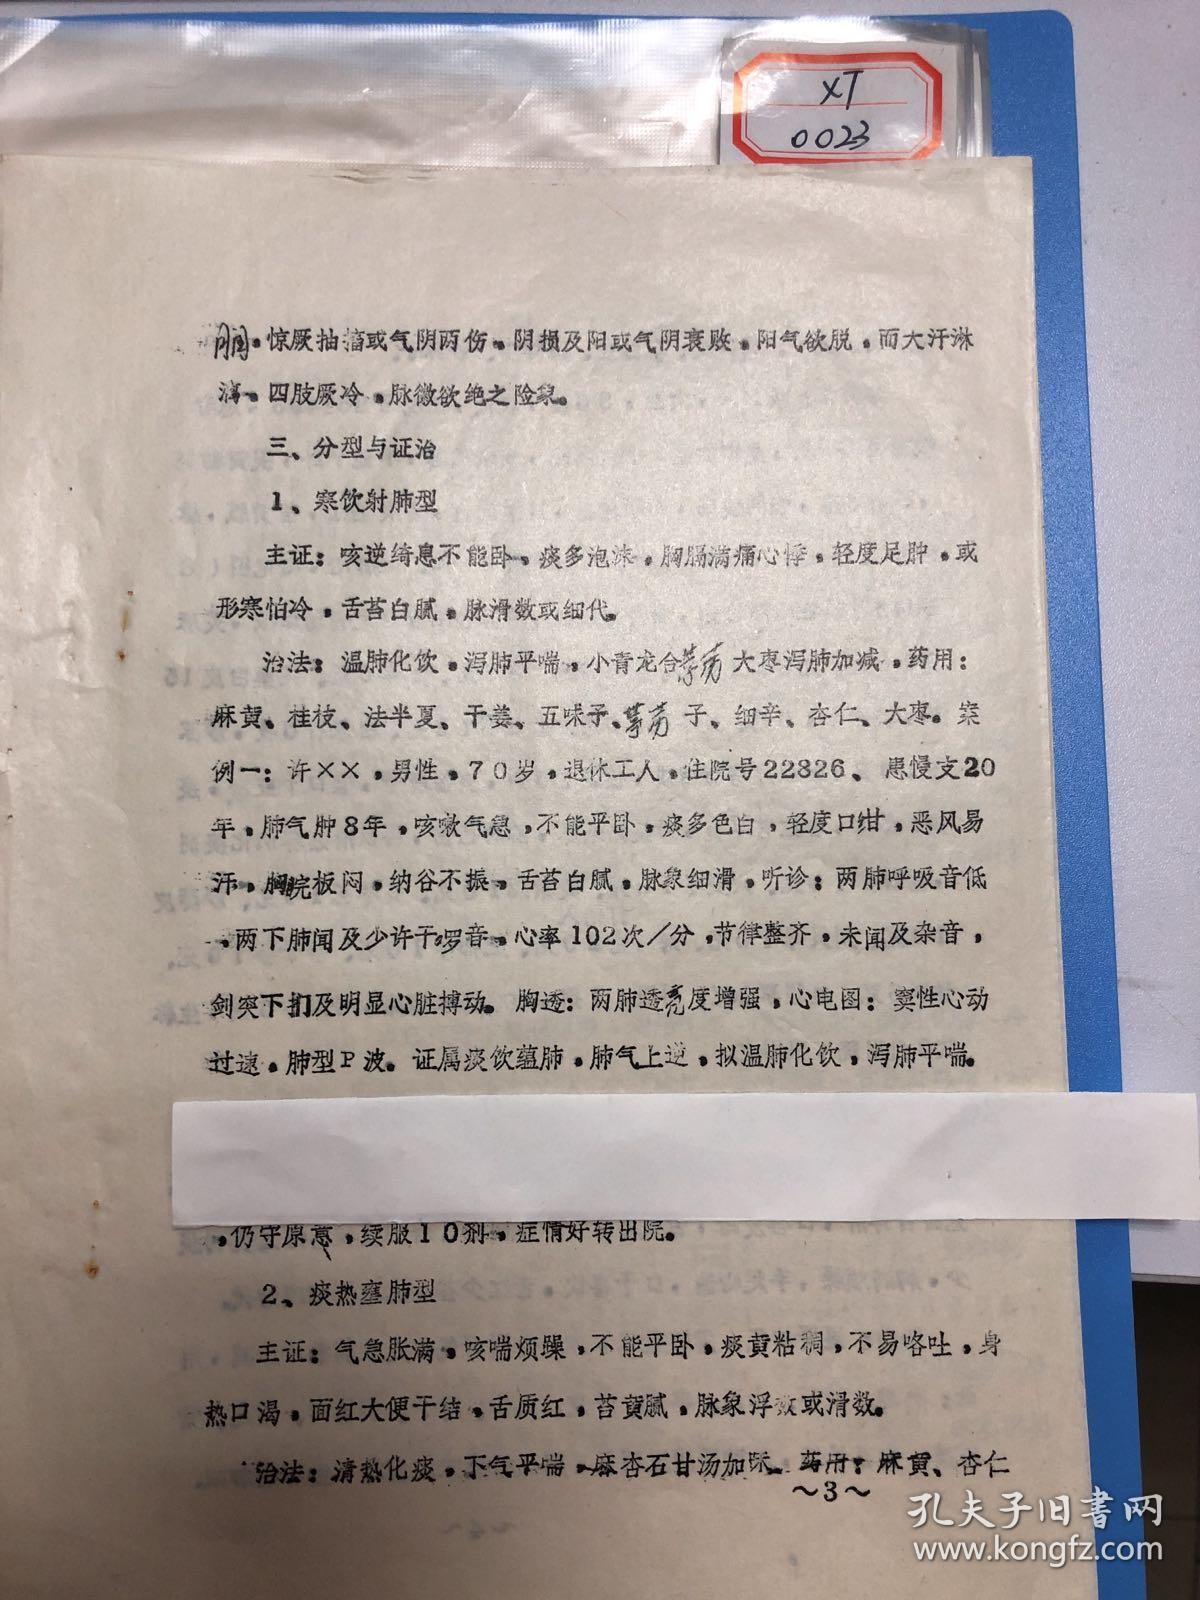 XT
0023
惊厥抽搐或气阴两伤、阴损及阳或气阴衰败,阳气欲脱,而大汗淋
漓、四肢厥冷,脉微欲绝之险象。
三、分型与证治
1、寒饮射肺型
主证:咳逆绮息不能卧、痰多泡沫,胸膈满痛心悸,轻度足肿,或
形寒怕冷,舌苔白腻,脉滑数或细代。
治法:温肺化饮,泻肺平喘,小青龙合葶苈大枣泻肺加减,药用:
麻黄、桂枝、法半夏、干姜、五味子、葶苈子、细辛、杏仁、大枣。案
例一:许××,男性,70岁,退休工人,住院号22826、患慢支20
年,肺气肿8年,咳嗽气急,不能平卧,痰多色白,轻度口绀,恶风易
汗,胸脘板闷,纳谷不振,舌苔白腻,脉象细滑,听诊:两肺呼吸音低
,两下肺闻及少许干罗音,心率102次/分,节律整齐,未闻及杂音,
剑突下扪及明显心脏搏动。胸透:两肺透亮度增强,心电图:窦性心动
过速,肺型P波。证属痰饮蕴肺,肺气上逆,拟温肺化饮,泻肺平喘。
,仍守原意,续服10剂,症情好转出院。
2、痰热壅肺型
主证:气急胀满,咳喘烦躁,不能平卧,痰黄粘稠,不易咯吐,身
热口渴,面红大便干结,舌质红,苔黄腻,脉象浮数或滑数。
治法:清热化痰,下气平喘,麻杏石甘汤加味。药用:麻黄、杏仁
~3~
孔夫子旧书网
www.kongfz.com